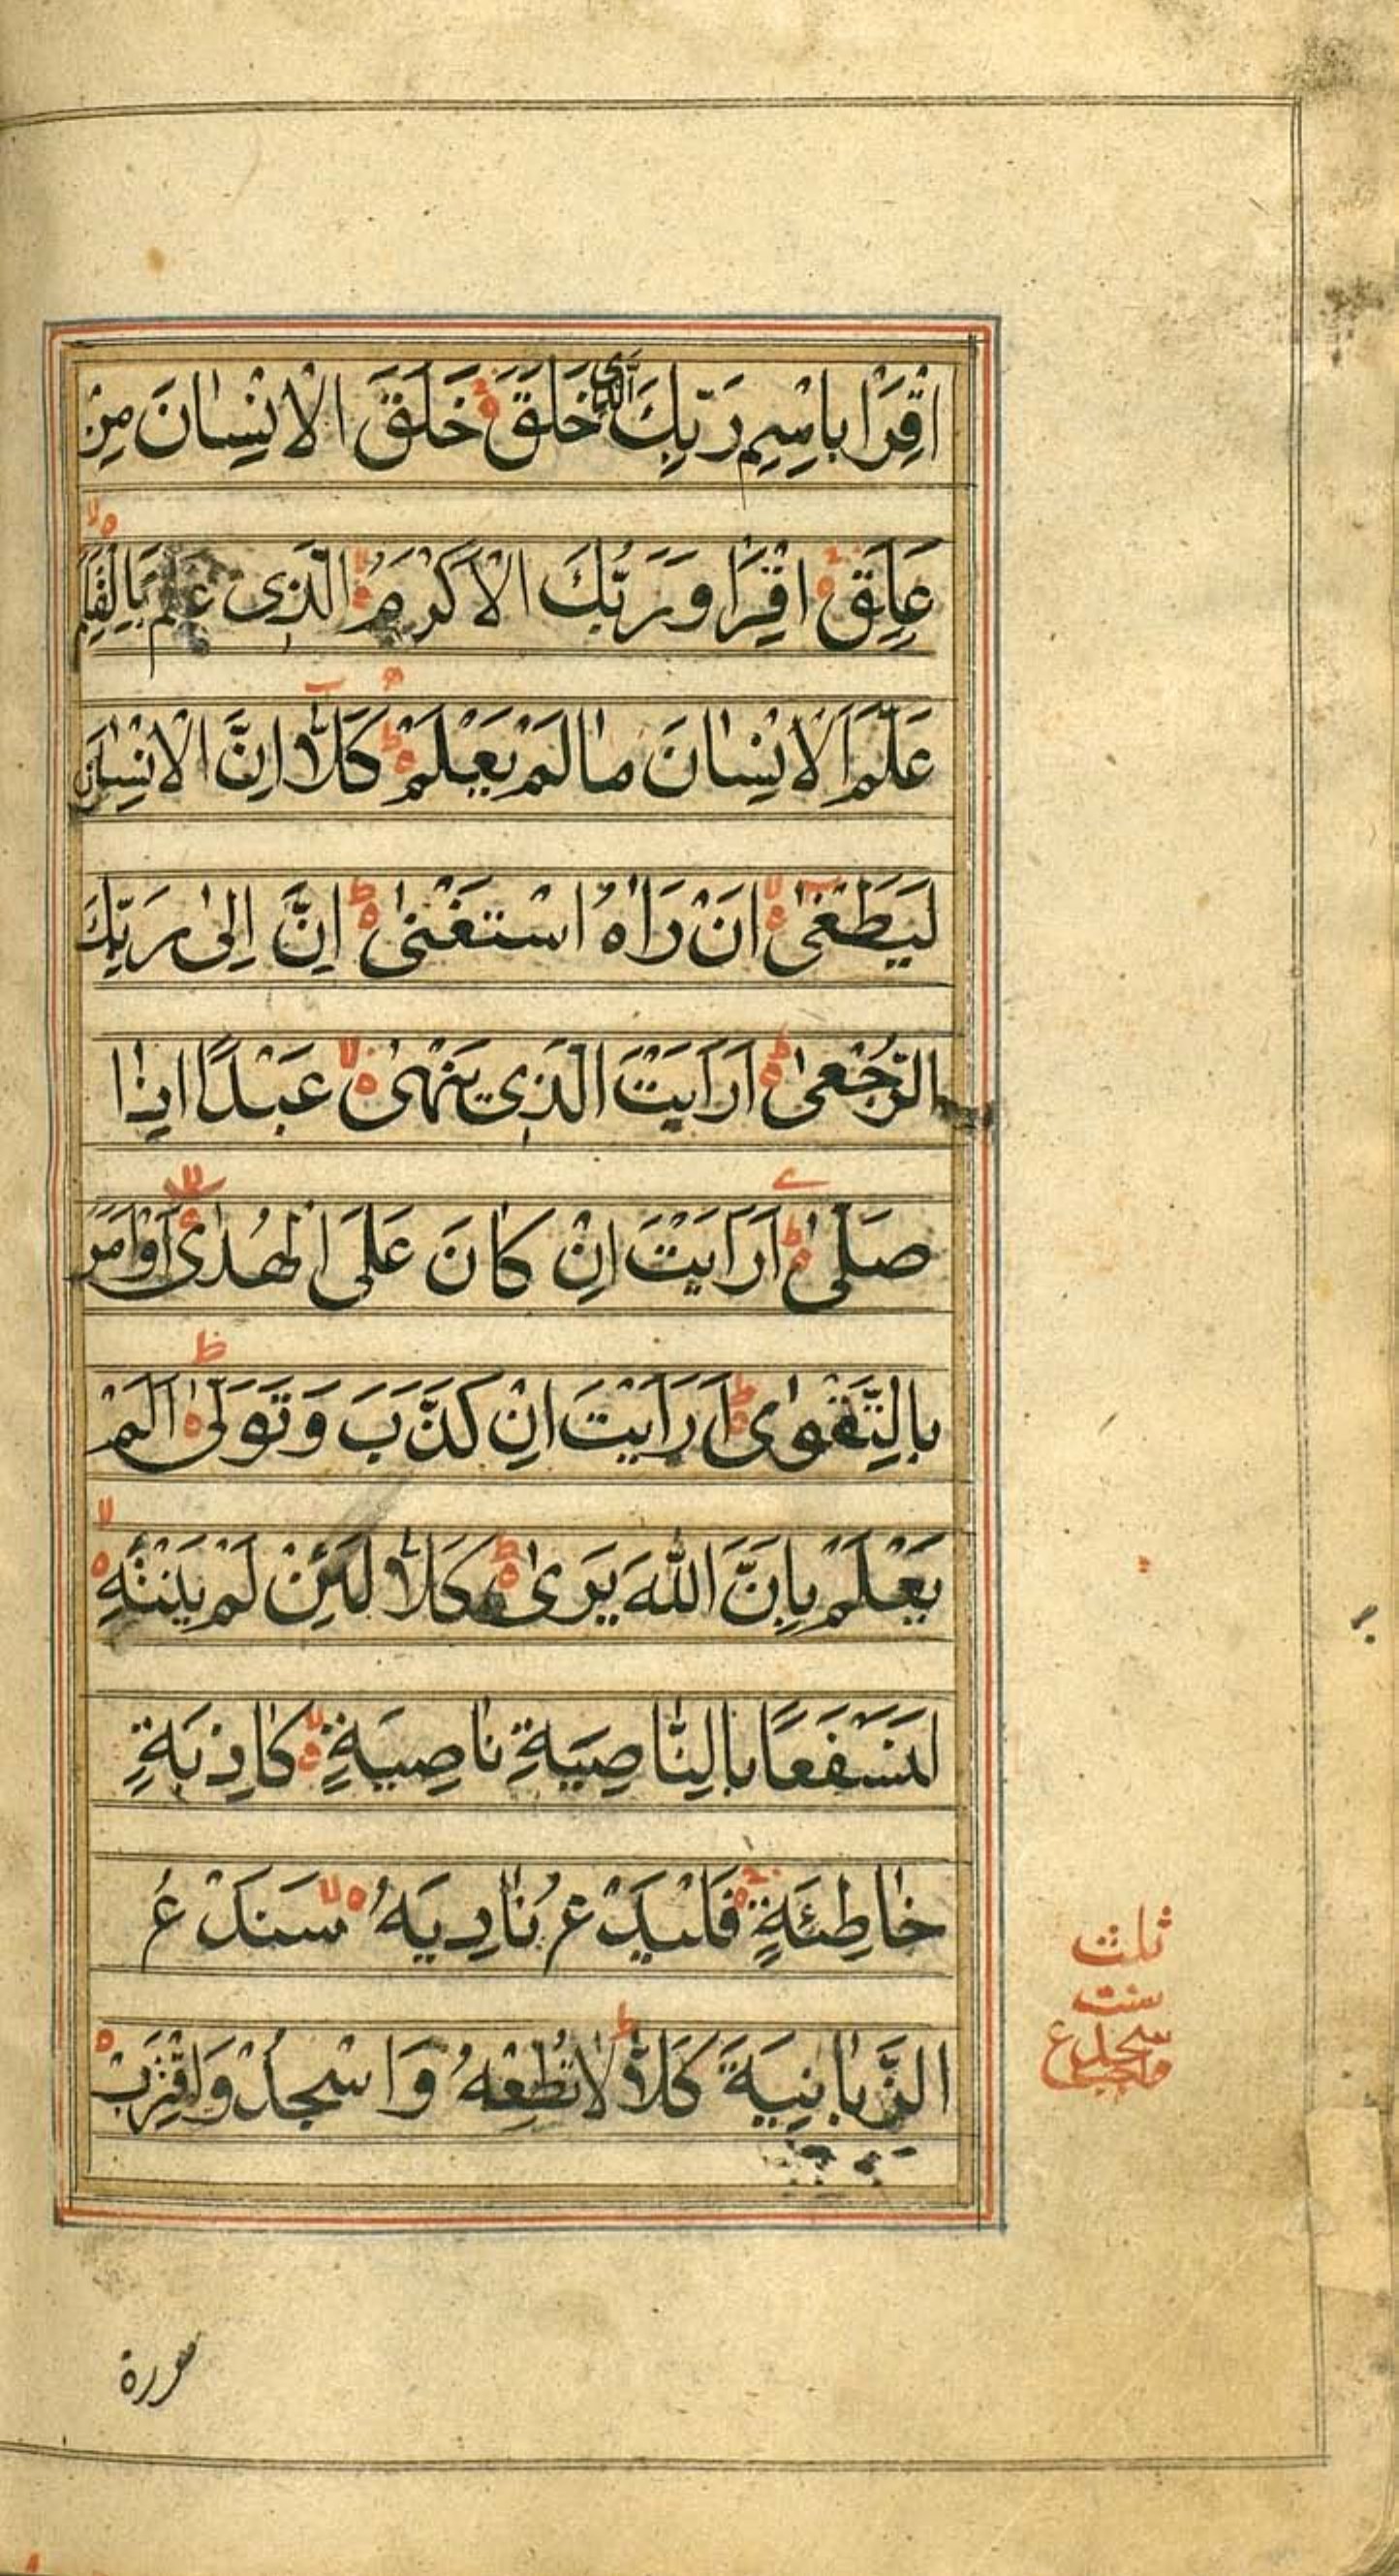 اِقْرَا بِاسْمِ رَبِّكَ الَّذِی خَلَقَ خَلَقَ الْاِنْسٰانَ مِنْ
عَلَقٍ اِقْرَا وَرَبُّكَ الْاَكْرَمُ الَّذِی عَلَّمَ بِالْقَلَمِ
عَلَّمَ الْاِنْسٰانَ مٰا لَمْ يَعْلَمْ كَلَّا اِنَّ الْاِنْسٰانَ
لَيَطْغىٰ اَنْ رَاٰهُ اسْتَغْنىٰ اِنَّ اِلىٰ رَبِّكَ
الرُّجْعىٰ اَرَاَيْتَ الَّذِی يَنْهىٰ عَبْدًا اِذٰا
صَلّىٰ اَرَاَيْتَ اِنْ كٰانَ عَلَی الْهُدىٰ اَوْ اَمَرَ
بِالتَّقْوٰی اَرَاَيْتَ اِنْ كَذَّبَ وَتَوَلّىٰ اَلَمْ
يَعْلَمْ بِاَنَّ اللّٰهَ يَرىٰ كَلَّا لَئِنْ لَمْ يَنْتَهِ
لَنَسْفَعًا بِالنّٰاصِيَةِ نٰاصِيَةٍ كٰاذِبَةٍ
خٰاطِئَةٍ فَلْيَدْعُ نٰادِيَهُ سَنَدْعُ
الزَّبٰانِيَةَ كَلَّا لٰا تُطِعْهُ وَاسْجُدْ وَاقْتَرِبْ
ثلث
سنت
سجدۀ
سورة